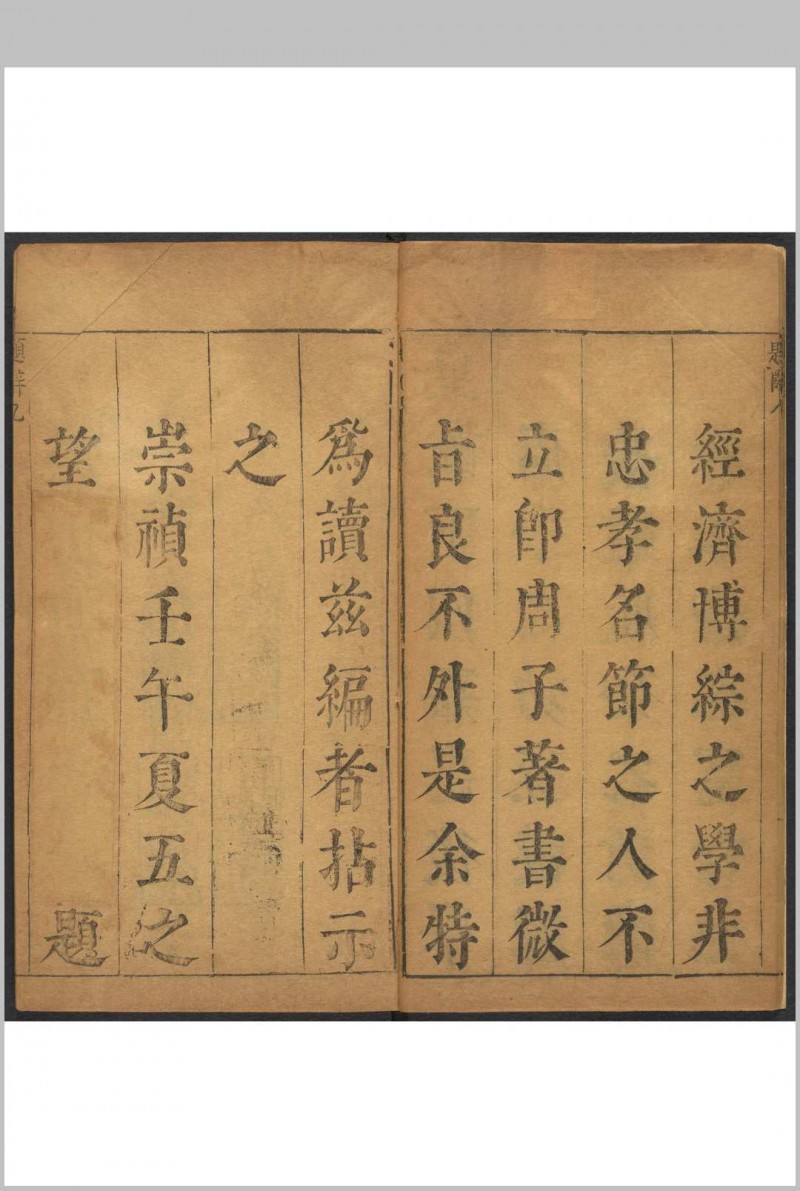 經濟博綜之學非
忠孝名節之人不
立卽周子著書微
旨良不外是余特
爲讀兹編者拈示
之
崇禎壬午夏五之
望　題
題辭九